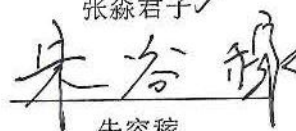 张淼君子
朱容稼
朱容稼